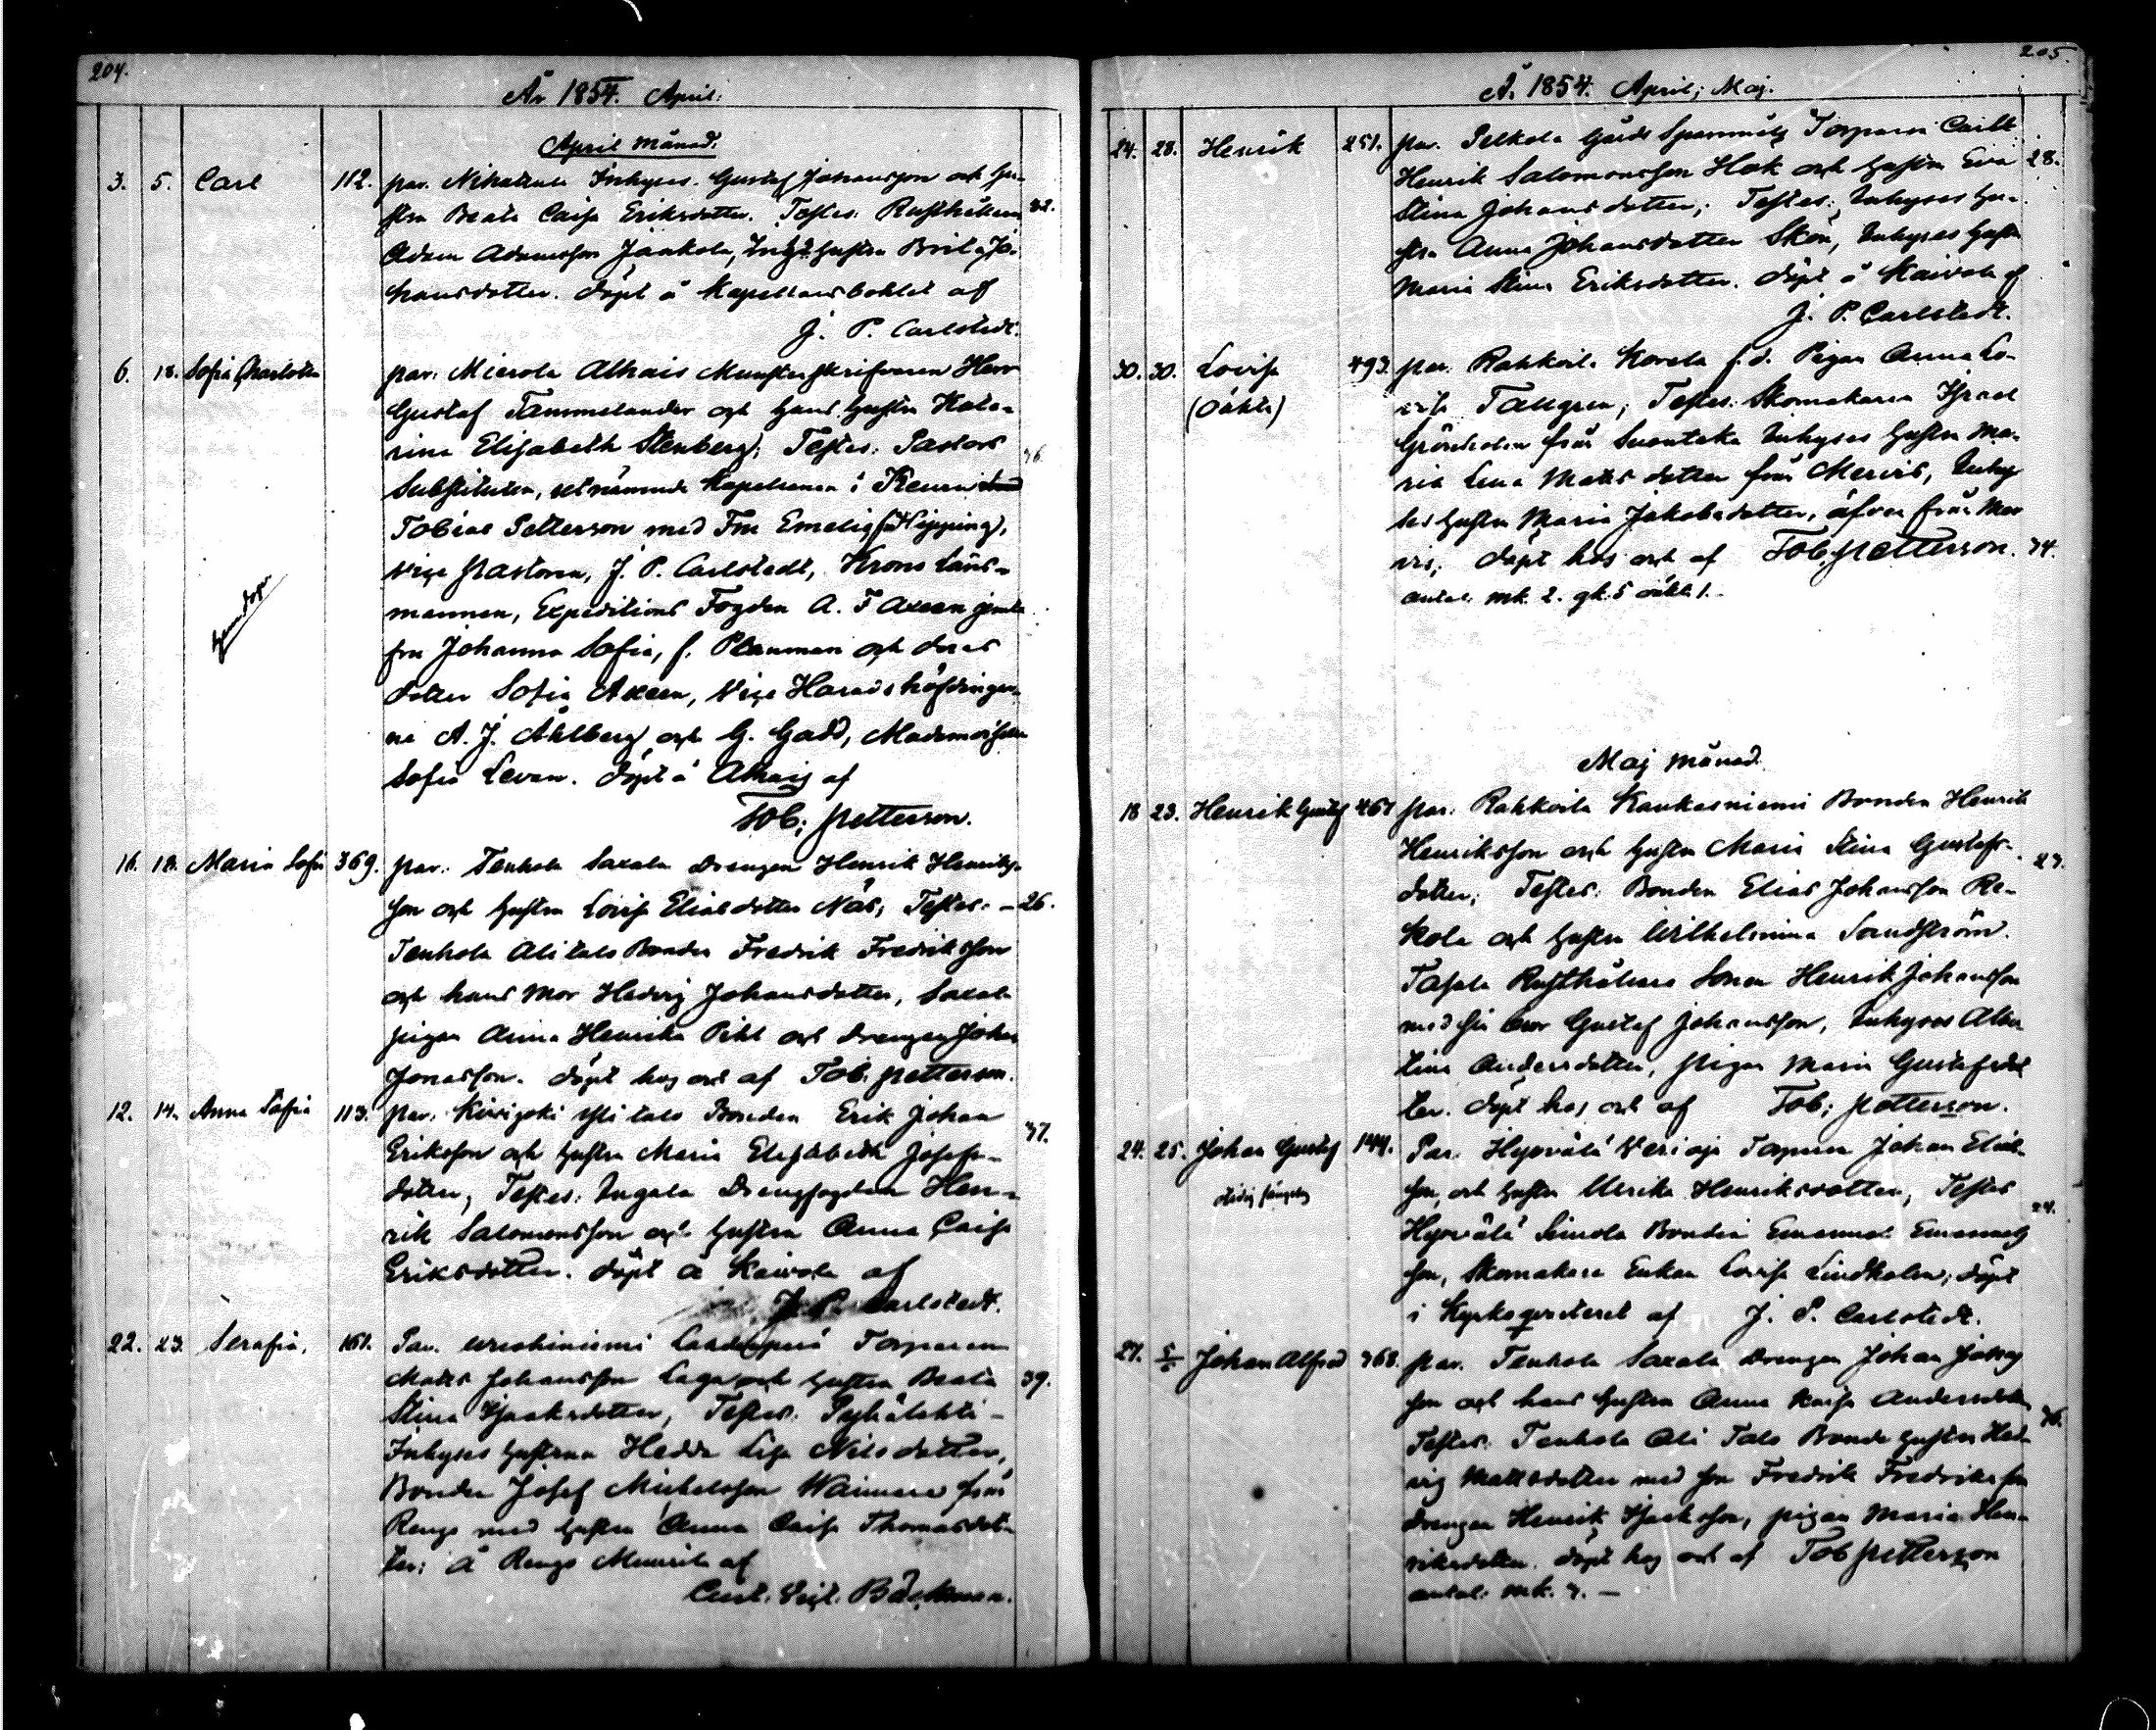 204.
År 1854. April.
April månad.
3. 5. Carl 112. par. Inhyses. Gustaf Johansson och hu-
stru Beata Caisa Eriksdotter. Testes: Rusthållaren 32.
Adam Adamsson Jaakola, hustru Brita Jo-
hansdotter. döpt å Kapellansbohlet af
J. P. Carlstedt.
6. 18. Sofia Charlotta par. Mierola Alhais Munsterskrifvaren Herr
Gustaf Tammelander och hans hustru Kata-
rina Elisabeth Stenberg; Testes: Pastors
Substituten, utnämnde Kapellanen i
Tobias Petterson med Fru Emelie,
Vice pastoren, J. P. Carlstedt, Krono Läns-
mannen, Expeditions Fogden A. F. Axeen jemte
fru Johanna Sofia, f. Planman och deras
dotter Sofia Axeen, Vice Häradshöfdingar-
ne A. J. Åhlberg och G. Gadd, Mademoiselle
Sofia Levan. döpt å Alhais af
Tob; petterson.
16. 18. Maria Sofia 369. par. Tenhola Saxala Drengen Henrik Henriks-
son och hustru Lovisa Eliasdotter Näs; Testes: - 26.
Tenhola Alitalo Bonden Fredrik Fredriksson
och hans mor Hedvig Johansdotter, Saxala
pigan Anna Henrika Pihl och Drengen Johan
Jonasson. döpt hos och af Tob. petterson.
12. 14. Anna Sofia 113. par. Yli talo Bonden Erik Johan
Eriksson och hustru Maria Elisabeth Josefs- 37.
dotter, Testes: Ingala Drengfogden Hen-
rik Salomonsson och hustru Anna Caisa
Eriksdotter. döpt å Kaivola af
J. P. Carlstedt.
22. 23. Serafia, 161. Par. Torparen
Matts Johansson Laga och hustru Beata 39.
Stina Isaksdotter, Testes:
Inhyses hustrun Hedda Lisa Nilsdotter,
Bonden Josef Michelsson Wainara från
Rengo med hustru Anna Caisa Thomasdot-
ter; å Rengo af
Bäckman.
205.
År 1854. April; Maj.
24. 28. Henrik 251. par. Pelkola Gårds Torparen Carl
Henrik Salomonsson Hok och hustru Eva 28.
Stina Johansdotter; Testes: Inhyses hu-
stru Anna Johansdotter Skön, Inhyses hustru
Maria Stina Eriksdotter. döpt å Kaivola af
J. P. Carlstedt.
30. 30. Lovisa 493. par. Rahkoila Korela f.d. Pigan Anna Lo-
(oäkta) visa Tallgren, Testes: Skomakaren Israel
Grönholm från Suontaka Inhyses hustru Ma-
ria Lena Mattsdotter från Mervis, Inhy-
ses hustru Maria Jakobsdotter, äfven från Mer-
vis; döpt hos och af Tob. petterson. 34.
antal. mk. 2. qk. 5 oäkta 1.
Maj månad.
18 23. Henrik Gustaf 467 par. Rahkoila Kankasniemi Bonden Henrik
Henriksson och hustru Maria Stina Gustafs- 27.
dotter; Testes: Bonden Elias Johansson Re-
kola och hustru Wilhelmina Sandström.
Tasala Rusthållare Sonen Henrik Johansson
med sin bror Gustaf Johansson, Inhyses
Andersdotter, pigan Maria Gustafsdot-
ter. döpt hos och af Tob; petterson.
24. 25. Johan Gustaf 144. Par. Hyvälä Torparen Johan Elias-
son och hustru Ulrika Henriksdotter, Testes 24.
Hyvälä Simola Bonden Emanuel Emanuels-
son, Skomakare Enkan Lovisa Lindholm; döpt
i af J. P. Carlstedt.
27. Johan Alfred 368. par. Tenhola Saxala Drengen Johan Jonas-
son och hans hustru Anna Kaisa Andersdotter 36.
Testes: Tenhola Ali Talo Bonde hustru Hed-
vig Mattsdotter med son Fredrik Fredriksson
drengen Henrik Isaksson, pigan Maria Hen-
riksdotter. döpt hos och af Tob petterson
antal. mk. 3. -